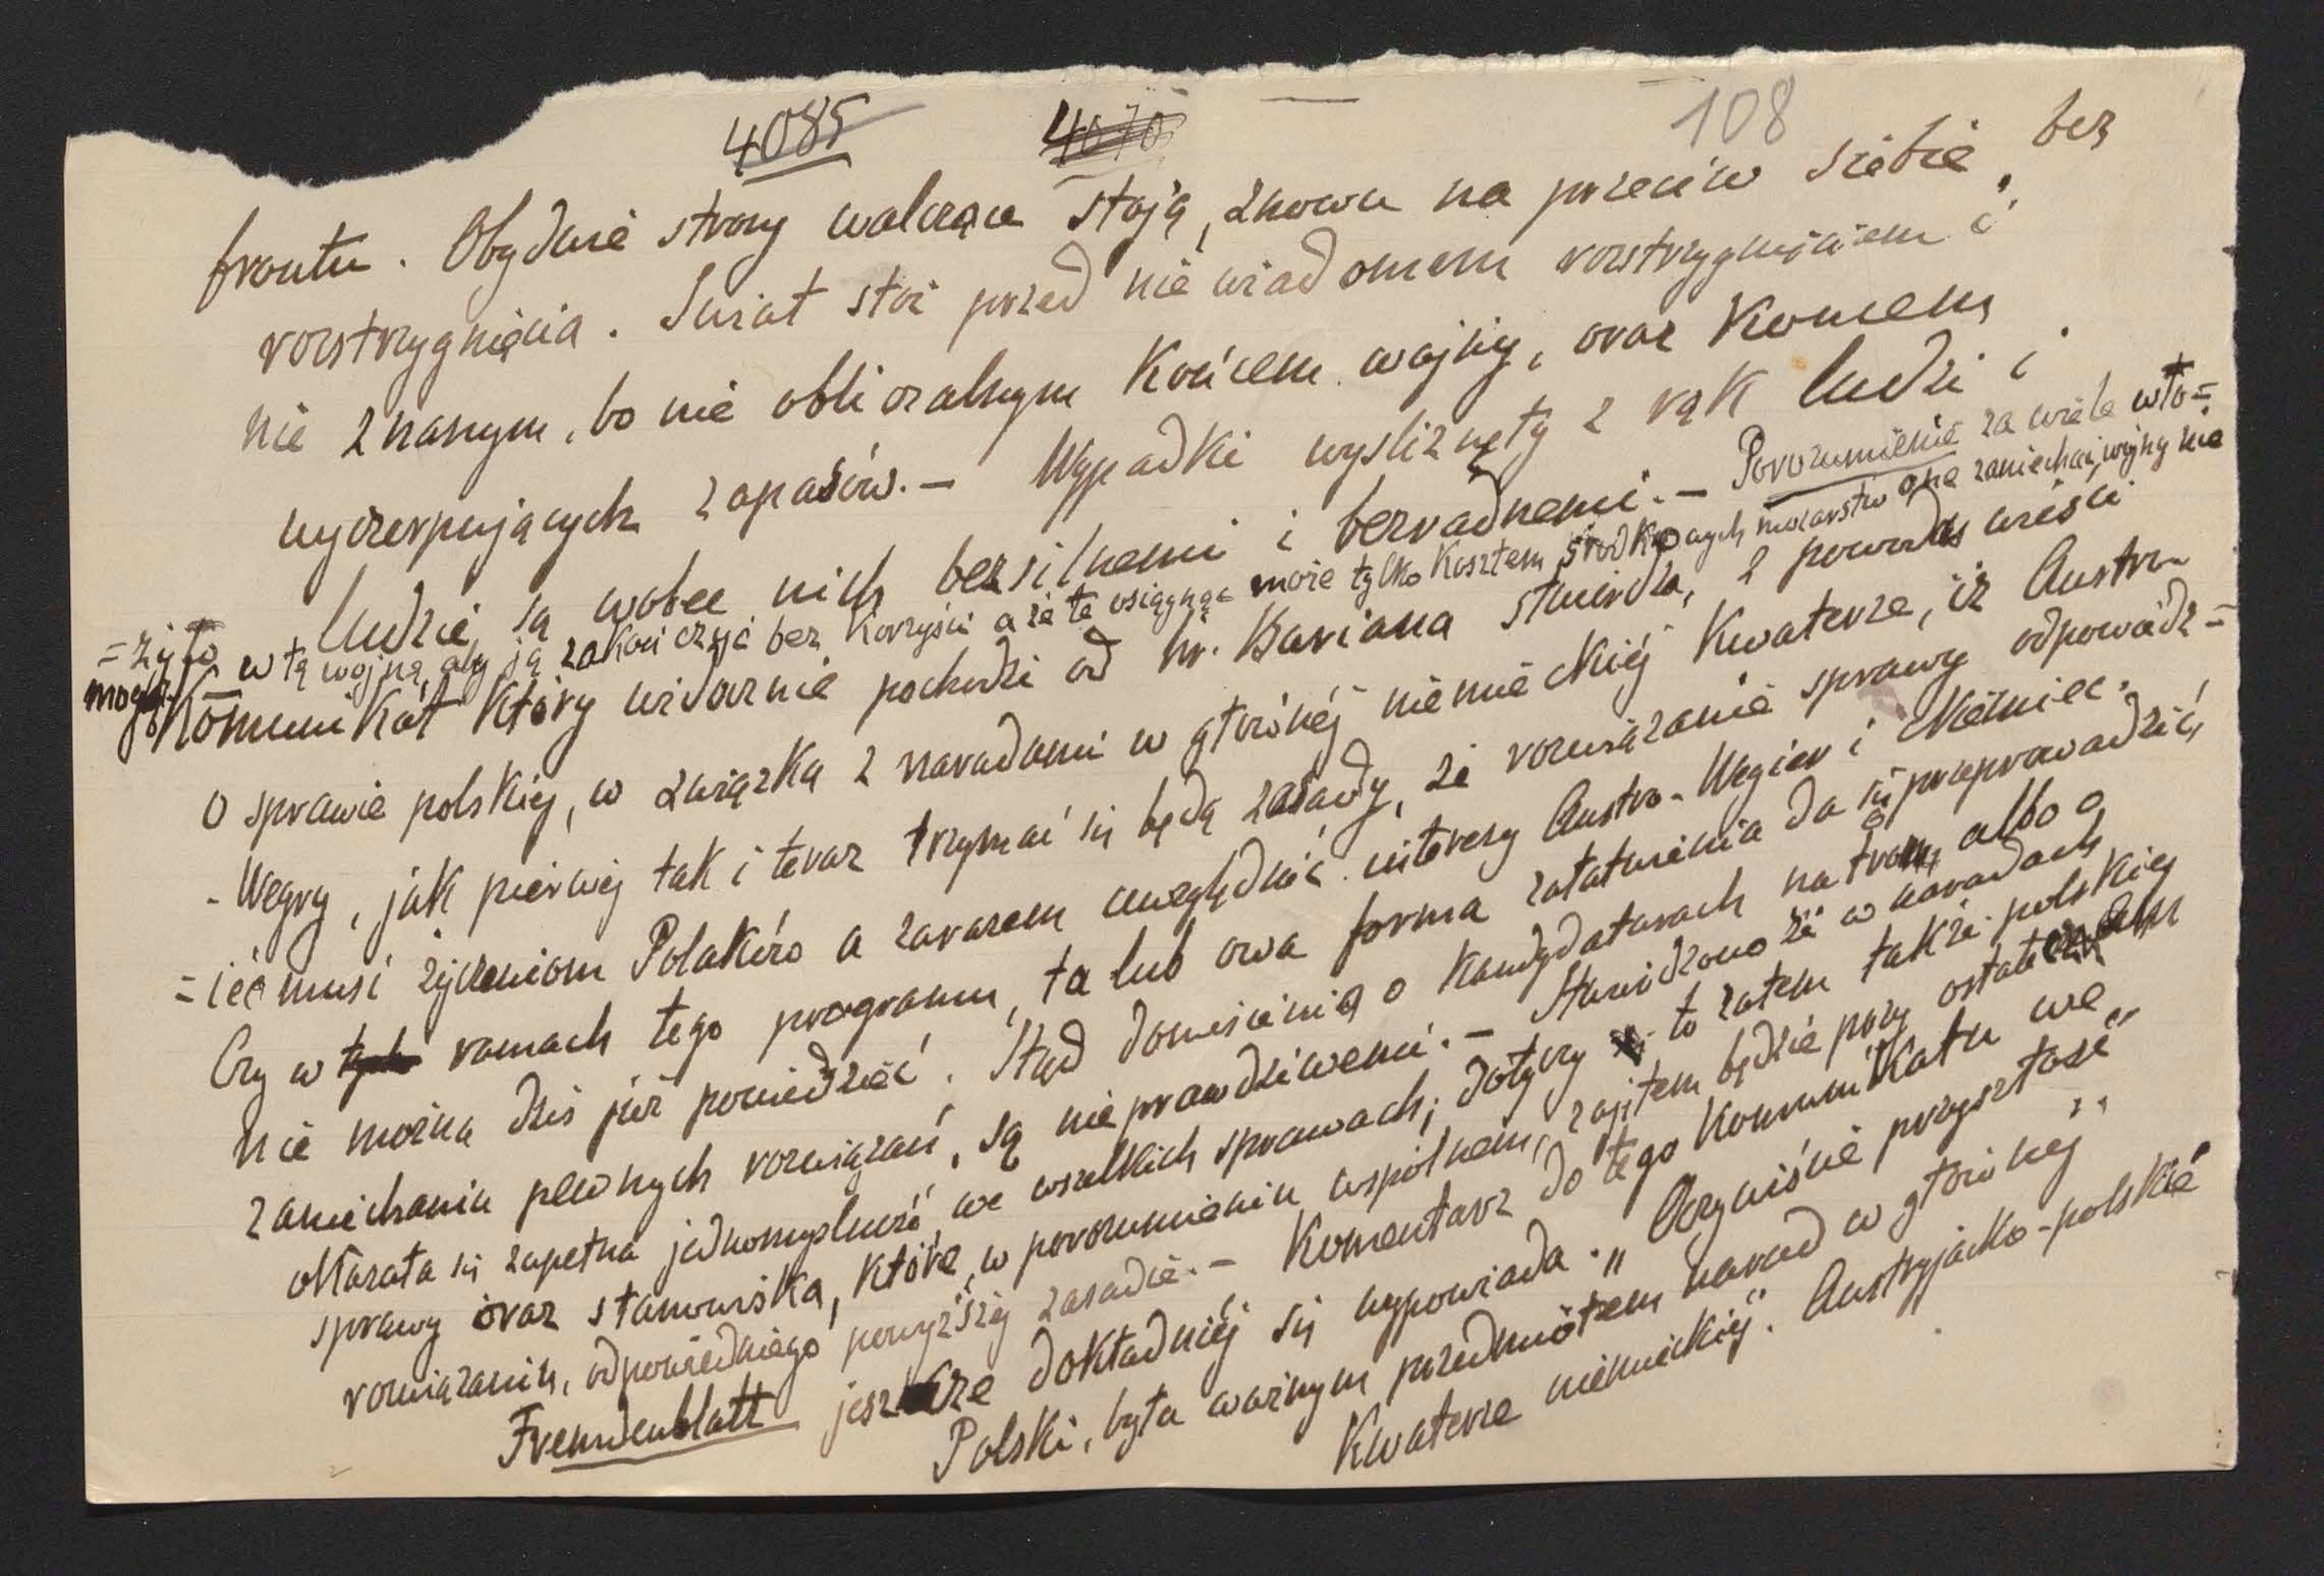 4085 4070 108
frontu. Obydwie strony walczące stoją, znowu na przeciw siebie, bez
rozstrzygnięcia. Świat stoi przed niewiadomem rozstrzygnięciem i
nie znanym, bo nie obliczalnym końcem wojny, oraz końcem
wyczerpujących zapasów.- Wypadki wyśliznęły z rąk ludzi i
ludzie są wobec nich bezsilnemi i bezradnemi.- Porozumienie za wiele wło=
=żyło w tą wojnę, aby ją zakończyć bez korzyści a że te osiągnąć może tylko kosztem środkowych mocarstw one zaniechać wojny nie
mogą.
Komunikat który widocznie pochodzi od hr. Buriana stwierdza, z powodu wieści
o sprawie polskiej, w związku z naradami w głównéj niemieckiéj kwaterze, iż Austro-
-Węgry, jak pierwej tak i teraz trzymać się będą zasady, że rozwiązanie sprawy odpowiedz=
=ieć musi życzeniom Polaków a zarazem uwzględnić interesy Austro-Węgier i Niemiec.
Czy w tych ramach tego programu, ta lub owa forma załatwienia da się przeprowadzić,
nie można dziś już powiedzieć. Stąd doniesienia o kandydaturach na tron, albo o
zaniechaniu pewnych rozwiązań, są nieprawdziwemi.- Stwierdzono że w naradach
okazała się zupełna jednomyślność we wszelkich sprawach; dotyczy to zatem także polskiej
sprawy oraz stanowiska, które w porozumieniu wspólnem, zajętem będzie przy ostatecznem
rozwiązaniu, odpowiedniego powyższej zasadzie.- Komentarz do tego komunikatu we
Fremdenblatt jeszcze dokładniéj się wypowiada. „Oczywiście przyszłość
Polski, była ważnym przedmiotem narad w głównéj
kwaterze niemieckiéj. Austryjacko-polskie